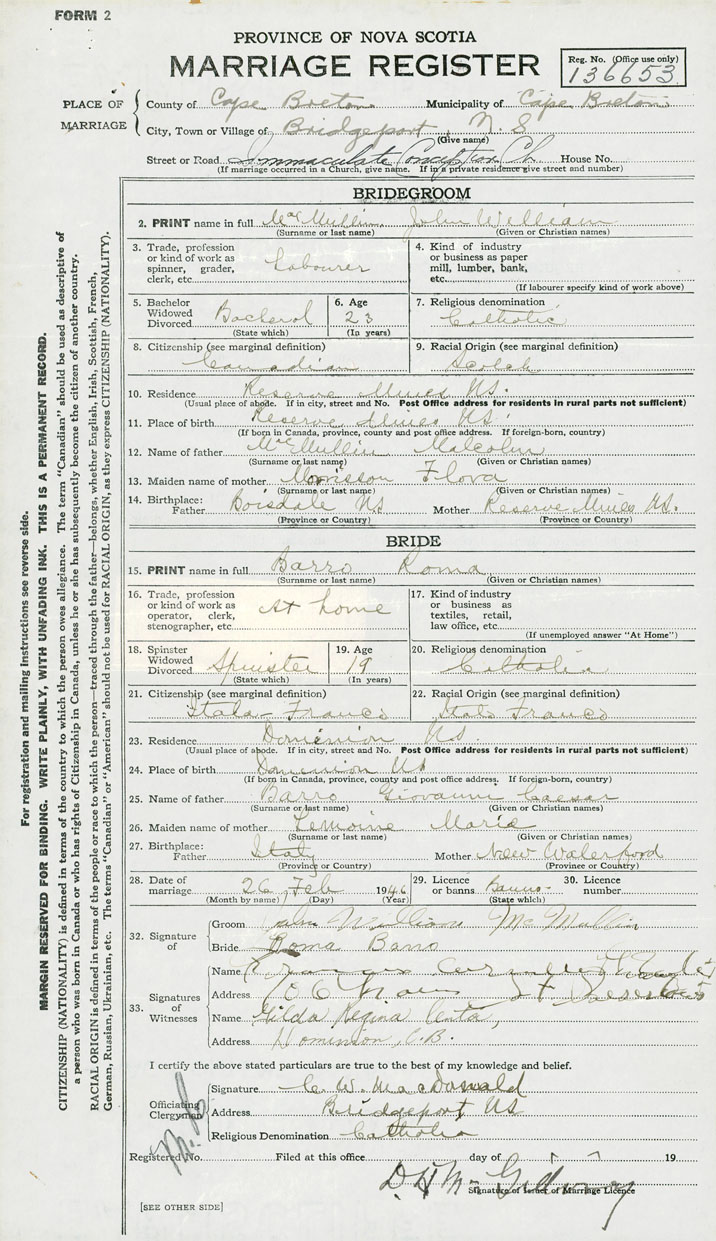 FORM 2
PROVINCE OF NOVA SCOTIA
MARRIAGE REGISTER
Reg. No. (Office use only)
136653
PLACE OF MARRIAGE
County of Cape Breton Municipality of Cape Breton
City, Town or Village of Bridgeport, N. S
(Give name)
Street or Road Immaculate Conception Ch. House No.
(If marriage occurred in a Church, give name. If in a private residence give street and number)
BRIDEGROOM
2. PRINT name in full MacMullin John William
(Surname or last name) (Given or Christian names)
3. Trade, profession or kind of work as spinner, grader, clerk, etc. Labourer
4. Kind of industry or business as paper mill, lumber, bank, etc.
(If labourer specify kind of work above)
5. Bachelor Widowed Divorced Bacherol
(State which)
6. Age 23
(In years)
7. Religious denomination Catholic
8. Citizenship (see marginal definition) Canadian
9. Racial Origin (see marginal definition) Scotch
10. Residence Reserve Mines NS.
(Usual place of abode. If in city, street and No. Post Office address for residents in rural parts not sufficient)
11. Place of birth Reserve Mines NS.
(If born in Canada, province, county and post office address. If foreign-born, country)
12. Name of father MacMullin Malcolm
(Surname or last name) (Given or Christian names)
13. Maiden name of mother Morrisson Flora
(Surname or last name) (Given or Christian names)
14. Birthplace: Father Boisdale NS Mother Reserve Mines NS.
(Province or Country) (Province or Country)
BRIDE
15. PRINT name in full Barro Roma
(Surname or last name) (Given or Christian names)
16. Trade, profession or kind of work as operator, clerk, stenographer, etc. At home
17. Kind of industry or business as textiles, retail, law office, etc.
(If unemployed answer "At Home")
18. Spinster Widowed Divorced Spinister
(State which)
19. Age 19
(In years)
20. Religious denomination Catholic
21. Citizenship (see marginal definition) Italo-Franco
22. Racial Origin (see marginal definition) Italo Franco
23. Residence Dominion NS.
(Usual place of abode. If in city, street and No. Post Office address for residents in rural parts not sufficient)
24. Place of birth Dominion NS
(If born in Canada, province, county and post office address. If foreign-born, country)
25. Name of father Barro Giovanni Caesar
(Surname or last name) (Given or Christian names)
26. Maiden name of mother Lemoine Marie
(Surname or last name) (Given or Christian names)
27. Birthplace: Father Italy Mother New Waterford
(Province or Country) (Province or Country)
28. Date of marriage 26, Feb 1946
(Month by name) (Day) (Year)
29. Licence or banns Banns
(State which)
30. Licence number
32. Signature of
Groom John William McMullin
Bride Roma Barro
33. Signatures of Witnesses
Name
Address
Name Gilda Regina
Address Dominion, C.B.
I certify the above stated particulars are true to the best of my knowledge and belief.
Officiating Clergyman
Signature C. W. MacDonald
Address Bridgeport, NS
Religious Denomination Catholic
Registered No. Filed at this office day of 19
Signature of Issuer of Marriage Licence
[SEE OTHER SIDE]
For registration and mailing instructions see reverse side.
MARGIN RESERVED FOR BINDING. WRITE PLAINLY, WITH UNFADING INK. THIS IS A PERMANENT RECORD.
CITIZENSHIP (NATIONALITY) is defined in terms of the country to which the person owes allegiance. The term "Canadian" should be used as descriptive of
a person who was born in Canada or who has rights of Citizenship in Canada, unless he or she has subsequently become the citizen of another country.
RACIAL ORIGIN is defined in terms of the people or race to which the person—traced through the father—belongs, whether English, Irish, Scottish, French,
German, Russian, Ukrainian, etc. The terms "Canadian" or "American" should not be used for RACIAL ORIGIN, as they express CITIZENSHIP (NATIONALITY).